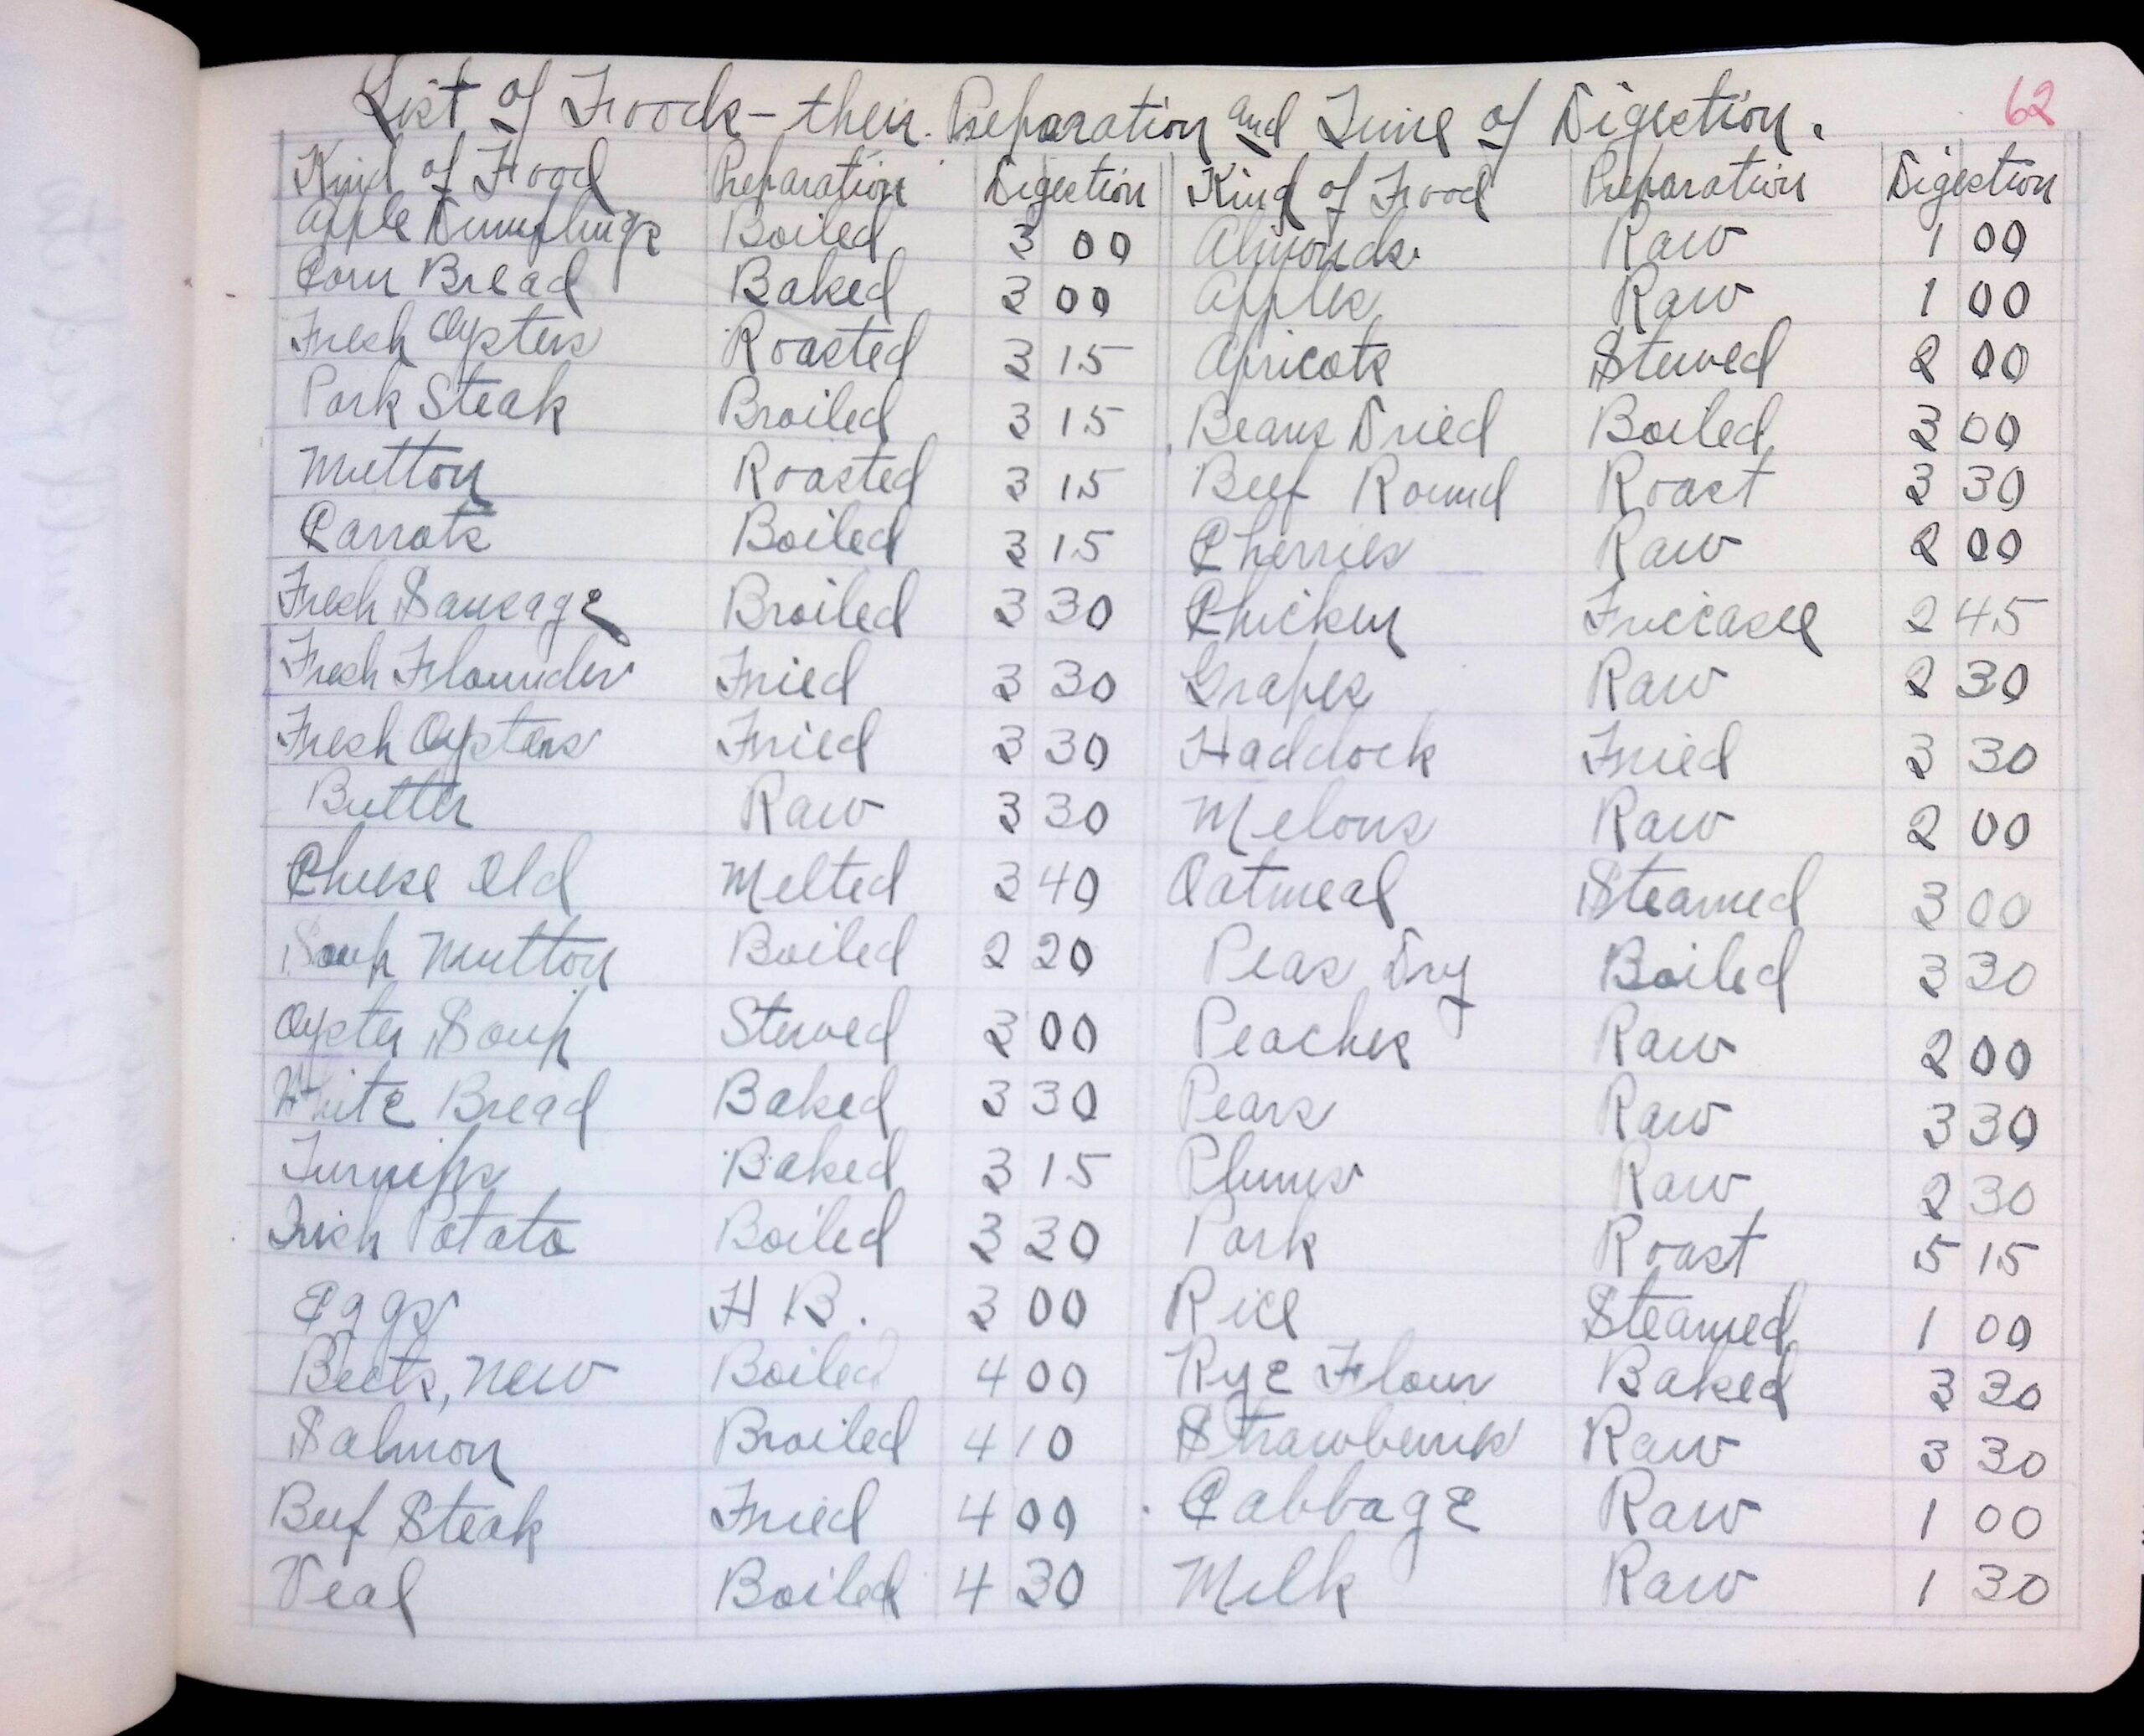 List of Foods - their Preparation and Time of Digestion. 62
Kind of Food Preparation Digestion Kind of Food Preparation Digestion
Apple Dumplings Boiled 3 00 Almonds. Raw 1 00
Corn Bread Baked 3 00 Apples Raw 1 00
Fresh Oysters Roasted 3 15 Apricots Stewed 2 00
Pork Steak Broiled 3 15 Beans Dried Boiled 3 00
Mutton Roasted 3 15 Beef Round Roast 3 30
Carrots Boiled 3 15 Cherries Raw 2 00
Fresh Sausage Broiled 3 30 Chicken Fricasee 2 45
Fresh Flounder Fried 3 30 Grapes Raw 2 30
Fresh Oysters Fried 3 30 Haddock Fried 3 30
Butter Raw 3 30 Melons Raw 2 00
Cheese Old Melted 3 40 Oatmeal Steamed 3 00
Soup Mutton Boiled 2 20 Peas Dry Boiled 3 30
Oyster Soup Stewed 3 00 Peaches Raw 2 00
White Bread Baked 3 30 Pears Raw 3 30
Turnips Baked 3 15 Plums Raw 2 30
Irish Potato Boiled 3 30 Pork Roast 5 15
Eggs H B. 3 00 Rice Steamed 1 00
Beets, New Boiled 4 00 Rye Flour Baked 3 30
Salmon Broiled 4 10 Strawberries Raw 3 30
Beef Steak Fried 4 00 Cabbage Raw 1 00
Veal Boiled 4 30 Milk Raw 1 30